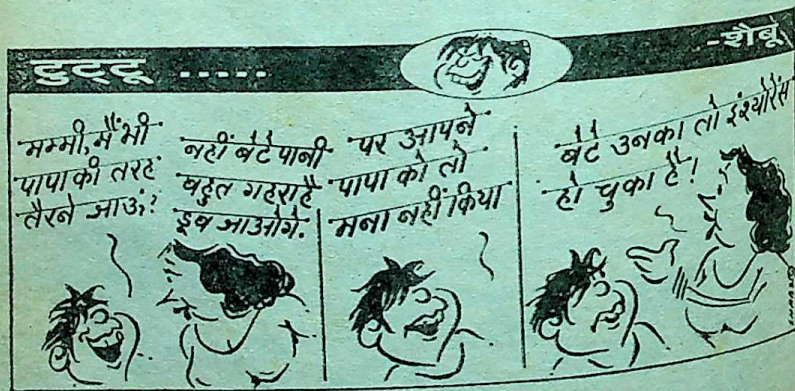 टुट्टू .....
-शैबू
मम्मी, मैं भी
पापा की तरह
तैरने जाऊं?
नहीं बेटे पानी
बहुत गहरा है
डूब जाओगे.
पर आपने
पापा को तो
मना नहीं किया
बेटे उनका तो इंश्योरेंस
हो चुका है!